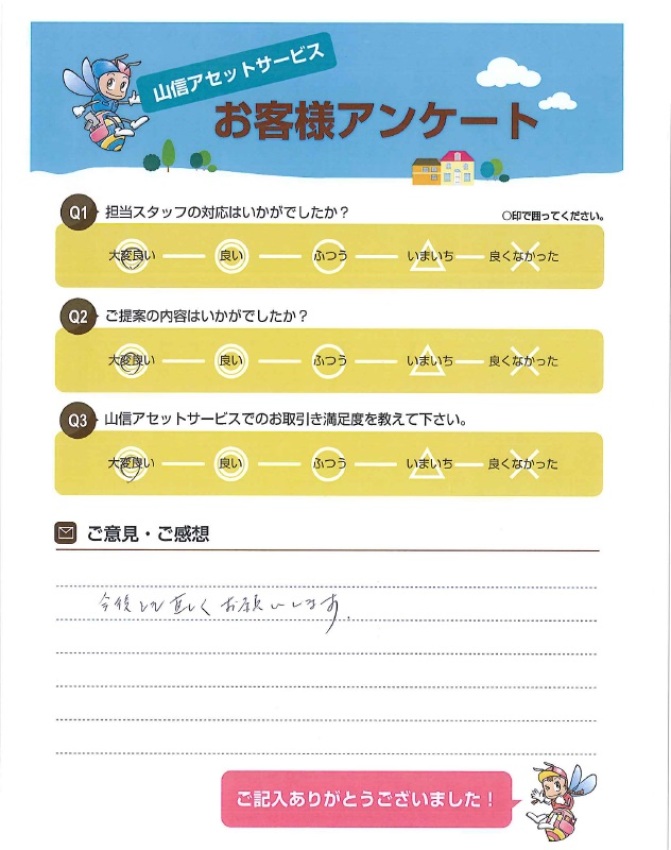 山信アセットサービス
お客様アンケート
Q1 担当スタッフの対応はいかがでしたか？ ○印で囲ってください。
大変良い 良い ふつう いまいち 良くなかった
Q2 ご提案の内容はいかがでしたか？
大変良い 良い ふつう いまいち 良くなかった
Q3 山信アセットサービスでのお取引き満足度を教えて下さい。
大変良い 良い ふつう いまいち 良くなかった
ご意見・ご感想
今後とも宜しくお願いします。
ご記入ありがとうございました！